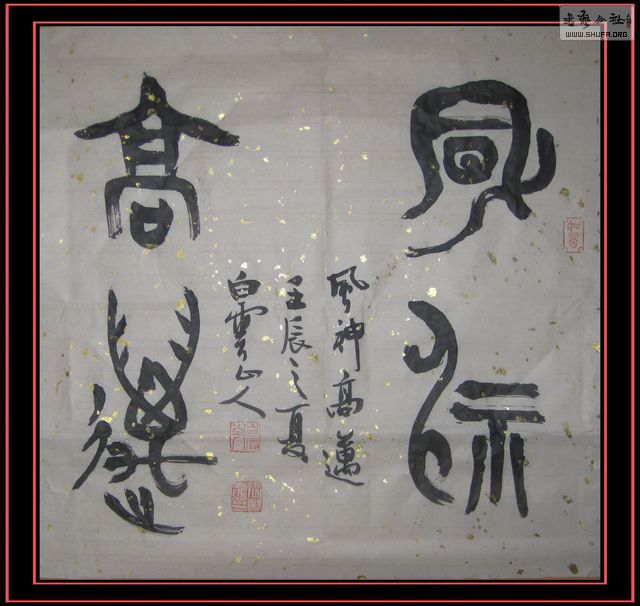 風神
高邁
風神高邁
壬辰之夏
白雲山人
書艺公社
WWW.SHUFA.ORG